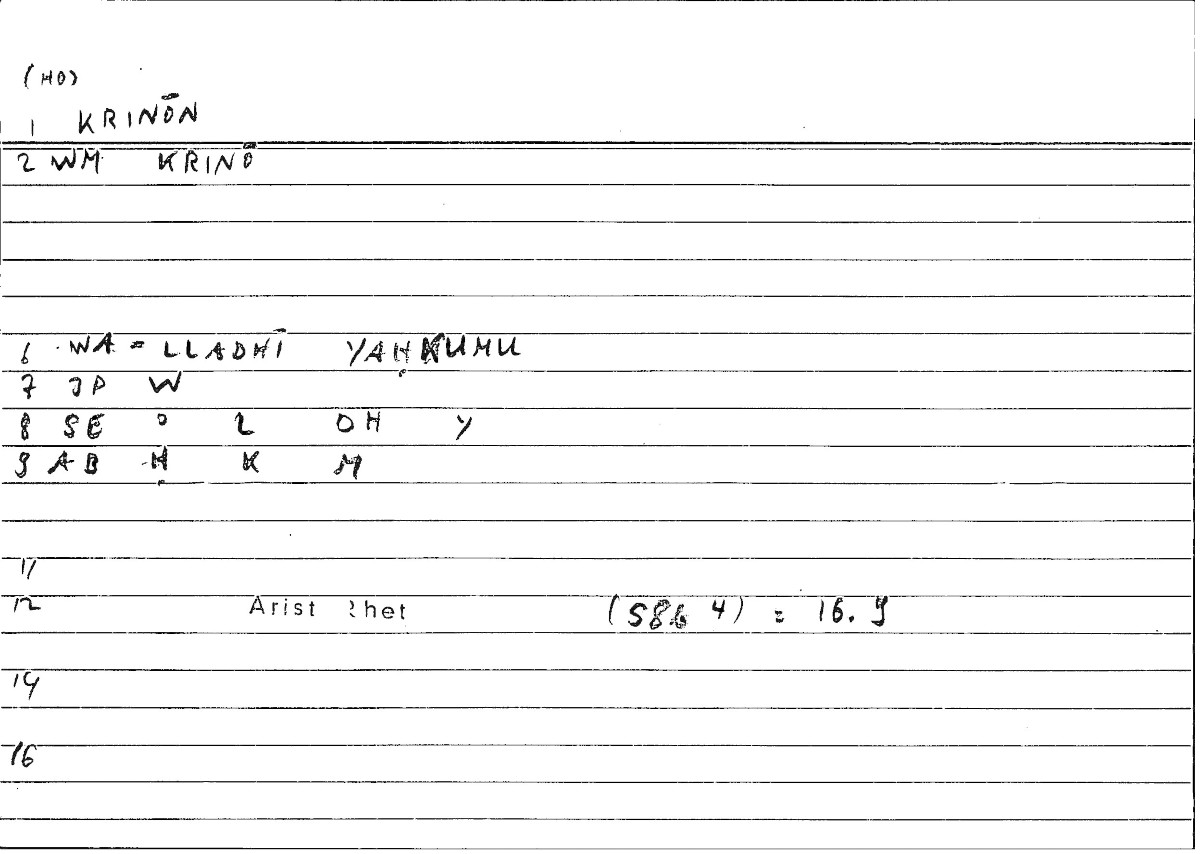 (HO)
1 KRINŌN
2 WM KRINŌ
6 WA = LLADHĪ YAḤKUMU
7 JP W
8 SE ° L DH Y
9 AB Ḥ K M
11
12 Arist Rhet (586 4) = 16. 9
14
16